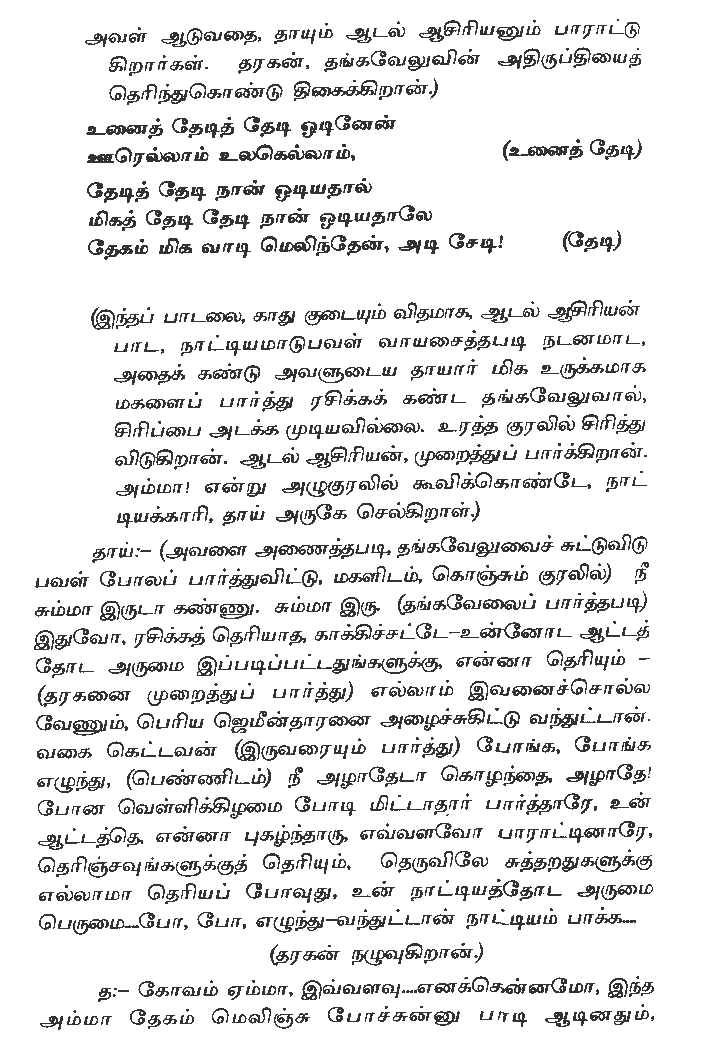 அவள் ஆடுவதை, தாயும் ஆடல் ஆசிரியனும் பாராட்டு
கிறார்கள். தரகன், தங்கவேலுவின் அதிருப்தியைத்
தெரிந்துகொண்டு திகைக்கிறான்.)
உனைத் தேடித் தேடி ஓடினேன்
ஊரெல்லாம் உலகெல்லாம், (உனைத் தேடி)
தேடித் தேடி நான் ஓடியதால்
மிகத் தேடி தேடி நான் ஓடியதாலே
தேகம் மிக வாடி மெலிந்தேன், அடி சேடி! (தேடி)
(இந்தப் பாடலை, காது குடையும் விதமாக, ஆடல் ஆசிரியன்
பாட, நாட்டியமாடுபவள் வாயசைத்தபடி நடனமாட,
அதைக் கண்டு அவளுடைய தாயார் மிக உருக்கமாக
மகளைப் பார்த்து ரசிக்கக் கண்ட தங்கவேலுவால்,
சிரிப்பை அடக்க முடியவில்லை. உரத்த குரலில் சிரித்து
விடுகிறான். ஆடல் ஆசிரியன், முறைத்துப் பார்க்கிறான்.
அம்மா! என்று அழுகுரலில் கூவிக்கொண்டே, நாட்
டியக்காரி, தாய் அருகே செல்கிறாள்.)
தாய்:– (அவளை அணைத்தபடி, தங்கவேலுவைச் சுட்டுவிடு
பவள் போலப் பார்த்துவிட்டு, மகளிடம், கொஞ்சும் குரலில்) நீ
சும்மா இருடா கண்ணு. சும்மா இரு. (தங்கவேலைப் பார்த்தபடி)
இதுவோ, ரசிக்கத் தெரியாத, காக்கிச்சட்டே–உன்னோட ஆட்டத்
தோட அருமை இப்படிப்பட்டதுங்களுக்கு, என்னா தெரியும் –
(தரகனை முறைத்துப் பார்த்து) எல்லாம் இவனைச்சொல்ல
வேணும், பெரிய ஜெமீன்தாரனை அழைச்சுகிட்டு வந்துட்டான்.
வகை கெட்டவன் (இருவரையும் பார்த்து) போங்க, போங்க
எழுந்து, (பெண்ணிடம்) நீ அழாதேடா கொழந்தை, அழாதே!
போன வெள்ளிக்கிழமை போடி மிட்டாதார் பார்த்தாரே, உன்
ஆட்டத்தெ, என்னா புகழ்ந்தாரு, எவ்வளவோ பாராட்டினாரே,
தெரிஞ்சவுங்களுக்குத் தெரியும், தெருவிலே சுத்தறதுகளுக்கு
எல்லாமா தெரியப் போவுது, உன் நாட்டியத்தோட அருமை
பெருமை....போ, போ, எழுந்து–வந்துட்டான் நாட்டியம் பாக்க....
(தரகன் நழுவுகிறான்.)
த:– கோவம் ஏம்மா, இவ்வளவு....எனக்கென்னமோ, இந்த
அம்மா தேகம் மெலிஞ்சு போச்சுன்னு பாடி ஆடினதும்,